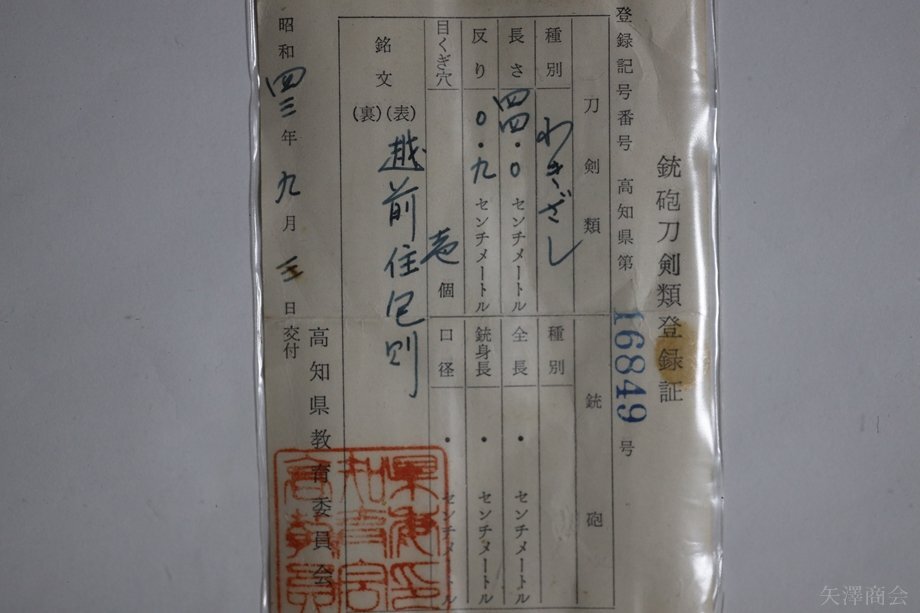 銃砲刀剣類登録証
登録記号番号 高知県第 16849 号
刀剣類
銃砲
種別 わきざし
種別
長さ 四四・〇 センチメートル
全長 ・ センチメートル
反り 〇・九 センチメートル
銃身長 ・ センチメートル
目くぎ穴 壱 個
口径 ・ センチメートル
銘文 (表) 越前住包則
(裏)
高知県教育委員会
昭和 四三 年 九 月 日 交付
矢澤商会